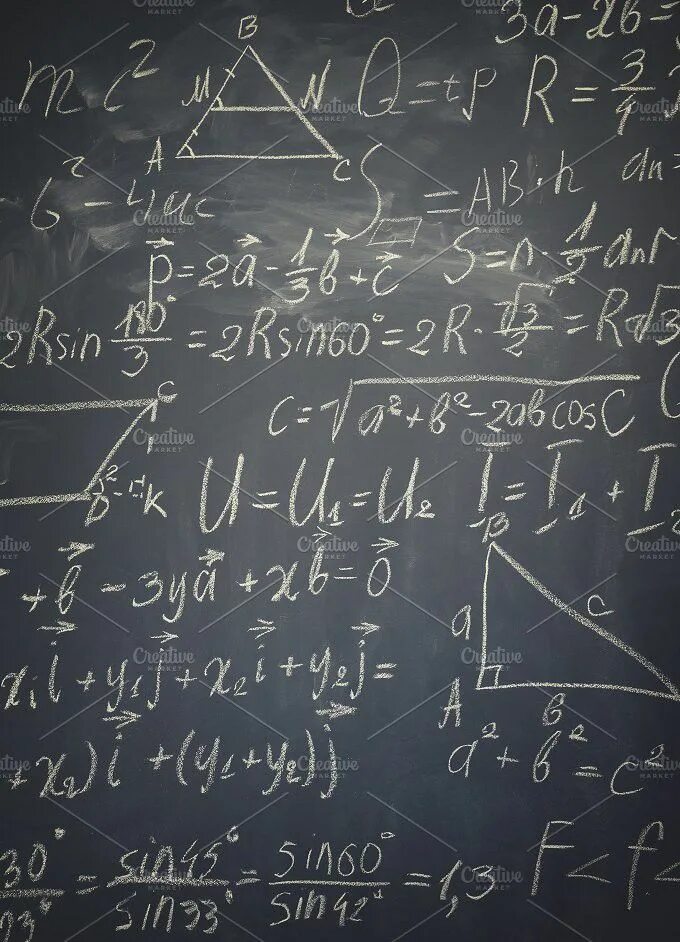 3a-2b=
B
mc² M N Q=tp R=3/4
A C
b²-4ac S=AB·h an=
p⃗=2a⃗-1/3b⃗+c⃗ S=n·1/2 anr
2Rsin 180°/3=2Rsin60°=2R·√3/2=R√3
C
c=√a²+b²-2abcosC
D K
U=U₁=U₂ I=I₁+I
B
+b⃗-3ya⃗+xb⃗=0⃗
a c
x₁i⃗+y₁j⃗+x₂i⃗+y₂j⃗=
A B
+x₂)i⃗+(y₁+y₂)j⃗
a²+b²=c²
30°=sin45°/sin33°=sin60°/sin42°=1,3 F<f<